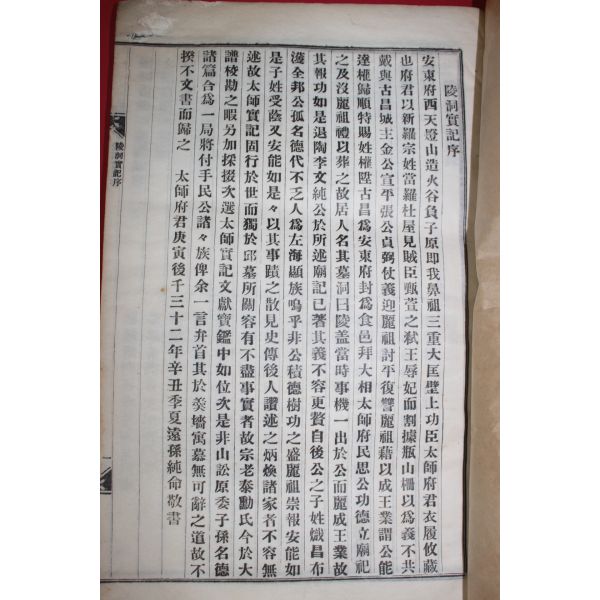 陵洞實記序
安東府西天燈山造火谷負子原即我鼻祖三重大匡壁上功臣太師府君衣履攸藏
也府君以新羅宗姓當羅杜屋見賊臣甄萱之弑王辱妃而割據瓶山柵以爲義不共
戴與古昌城主金公宣平張公貞弼仗義迎麗祖討平復讐麗祖藉以成王業謂公能
達權歸順特賜姓權陞古昌爲安東府封爲食邑拜大相太師府民思公功德立廟祀
之及沒麗祖禮以葬之故居人名其墓洞曰陵盖當時事機一出於公而麗成王業故
其報功如是退陶李文純公於所述廟記已著其義不容更贅自後公之子姓熾昌布
濩全邦公孤名德代不乏人爲左海顯族嗚乎非公積德樹功之盛麗祖崇報安能如
是子姓受蔭又安能如是々以其事蹟之散見史傳後人讚述之炳煥諸家者不容無
述故太師實記固行於世而獨於邱墓所關容有不盡事實者故宗老泰勳氏今於大
譜校勘之暇另加採掇次選太師實記文獻寶鑑中如位次是非山訟原委子孫名德
諸篇合爲一局將付手民公諸々族俾余一言弁首其於羮墻寓慕無可辭之道故不
揆不文書而歸之　太師府君庚寅後千三十二年辛丑季夏遠孫純命敬書
陵洞實記序